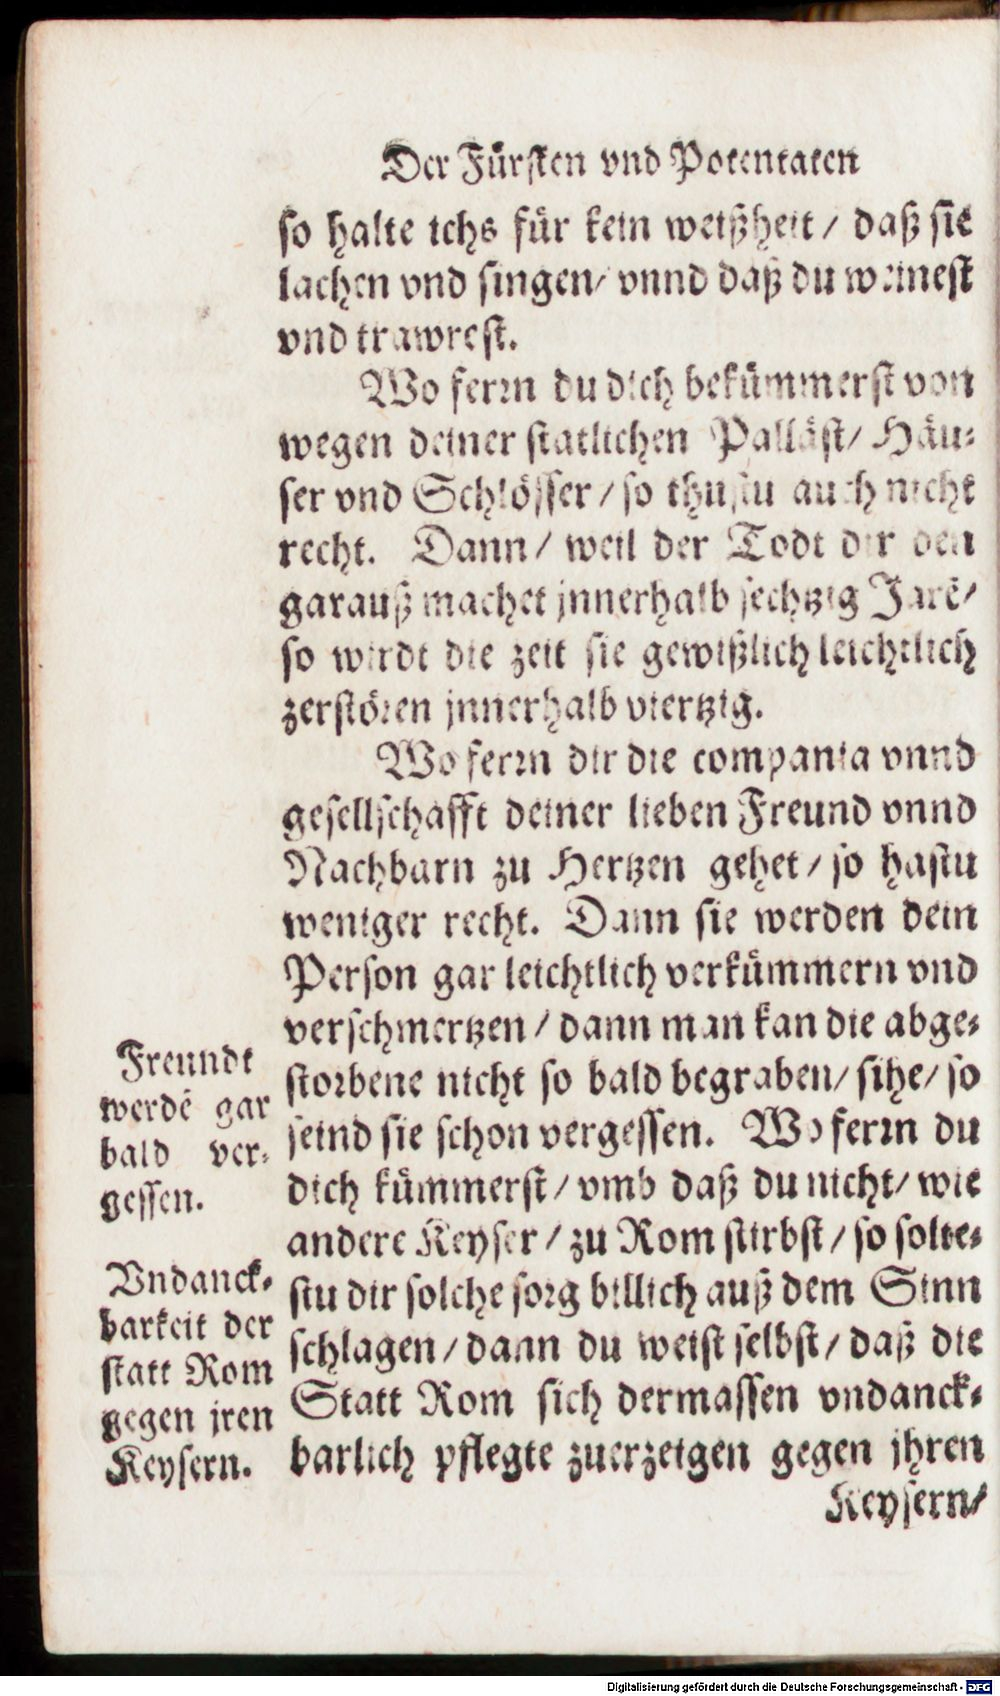 Der Fürsten vnd Potentaten
so halte ichs für kein weißheit / daß sie
lachen vnd singen / vnnd daß du weinest
vnd trawrest.
Wo ferrn du dich bekümmerst von
wegen deiner statlichen Palläst / Häu-
ser vnd Schlösser / so thustu auch nicht
recht. Dann / weil der Todt dir den
garauß machet jnnerhalb sechtzig Jarē /
so wirdt die zeit sie gewißlich leichtlich
zerstören jnnerhalb viertzig.
Wo ferrn dir die compania vnnd
gesellschafft deiner lieben Freund vnnd
Nachbarn zu Hertzen gehet / so hastu
weniger recht. Dann sie werden dein
Person gar leichtlich verkümmern vnd
verschmertzen / dann man kan die abge-
storbene nicht so bald begraben / sihe / so
seind sie schon vergessen. Wo ferrn du
dich kümmerst / vmb daß du nicht / wie
andere Keyser / zu Rom stirbst / so solte-
stu dir solche sorg billich auß dem Sinn
schlagen / dann du weist selbst / daß die
Statt Rom sich dermassen vndanck-
barlich pflegte zuerzeigen gegen jhren
Keysern /
Freundt
werdē gar
bald ver-
gessen.
Vndanck-
barkeit der
statt Rom
gegen jren
Keysern.
Digitalisierung gefördert durch die Deutsche Forschungsgemeinschaft - DFG